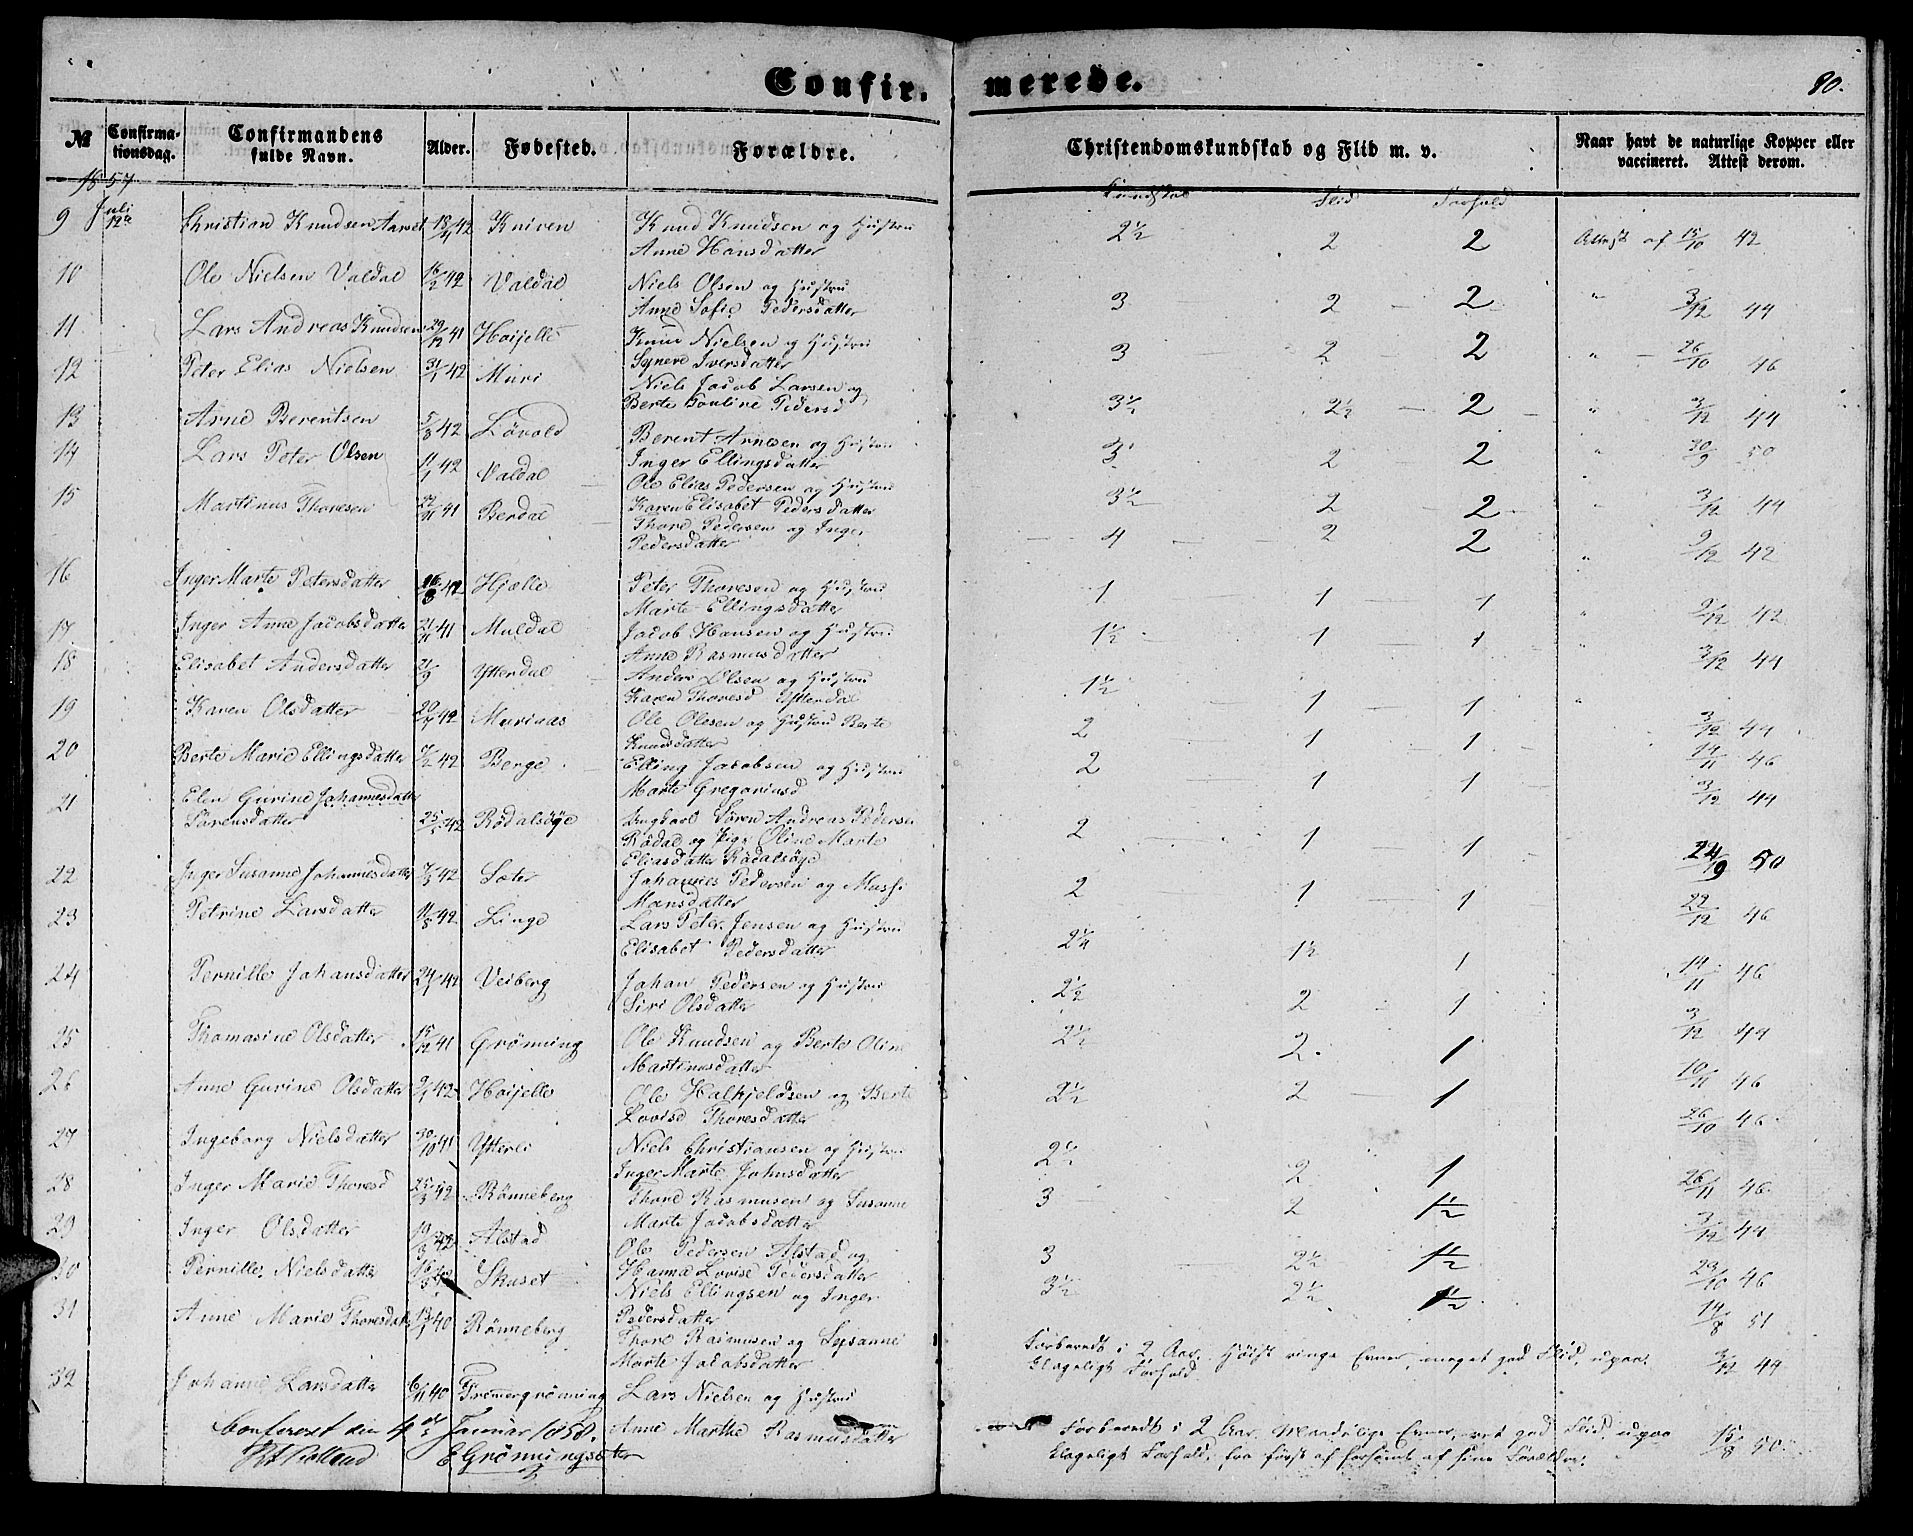 Confirmerede.
80.
№ Confirmationsdag. Confirmandens fulde Navn. Alder. Fødested. Forældre. Christendomskundskab og Flid m. v. Naar havt de naturlige Kopper eller vaccineret. Attest derom.
1857 Kundskab Flid Forhold
9 Juli 12te Christian Knudsen Aarset 18/1 42 Kniven Knud Knudsen og Hustru 2½ 2 2 Attest af 15/10 42
Anne Hansdatter
10 Ole Nielsen Valdal 16/2 42 Valdal Niels Olsen og Hustru 3 2 2 " 3/12 44
Anne Sofie Pedersdatter
11 Lars Andreas Knudsen 29/12 41 Hoijelle Knud Nielsen og Hustru 3 2 2 " 26/10 46
Synere Iversdatter
12 Peter Elias Nielsen 31/1 42 Muri Niels Jacob Larsen og 3½ 2½ 2 " 3/12 44
Berte Pouline Pedersd
13 Arne Berentsen 5/8 42 Lövold Berent Arnesen og Hustru 3 2 2 " 30/9 50
Inger Ellingsdatter
14 Lars Peter Olsen 11/1 42 Valdal Ole Elias Pedersen og Hustru 3½ 2 2 " 3/12 44
Karen Elisabet Pedersdatter
15 Martinus Thoresen 22/11 41 Berdal Thore Pedersen og Inger 4 2 2 " 9/12 42
Pedersdatter
16 Inger Marte Petersdatter 26/8 42 Hjælle Peter Thoresen og Hustru 1 1 1 " 9/12 42
Marte Ellingsdatter
17 Inger Anne Jacobsdatter 21/11 41 Muldal Jacob Hansen og Hustru 1½ 1 1 " 3/12 44
Anne Rasmusdatter
18 Elisabet Andersdatter 21/9 Ytterdal Anders Olsen og Hustru 1½ 1 1 " 3/12 44
Karen Thoresd Ytterdal
19 Karen Olsdatter 20/7 42 Murinas Ole Olesen og Hustru Berte 2 1 1 14/11 46
Knudsdatter
20 Berte Marie Ellingsdatter 7/2 42 Berge Elling Jacobsen og Hustru 2 1 1 3/12 44
Marte Gregoriusd
21 Elen Gurine Johannesdatter Sörensdatter 25/1 42 Rödalsöge Ungkarl Sören Andreas Pedersen 2 1 1 24/9 50
Rödal og Pige Oline Marte
Eliasdatter Rödalsöge
22 Inger Susanne Johannesdatter 7/3 42 Sæter Johannes Pedersen og Massi 2 1 1 22/12 46
Mansdatter
23 Petrine Larsdatter 11/8 42 Linge Lars Peter Jensen og Hustru 2¼ 1½ 1 14/11 46
Elisabet Pedersdatter
24 Pernille Johansdatter 24/1 42 Veiberg Johan Pedersen og Hustru 2½ 2 1 3/12 44
Siri Olsdatter
25 Thomasine Olsdatter 15/12 41 Grönning Ole Knudsen og Berte Oline 2½ 2 1 10/11 46
Martinusdatter
26 Anne Gurine Olsdatter 9/1 42 Hoijelle Ole Halkjeldsen og Berte 2½ 2 1 26/10 46
Lovise Thoresdatter
27 Ingeborg Nielsdatter 30/10 41 Ytterli Niels Christiansen og Hustru 2½ 2 1 26/11 46
Inger Marte Johnsdatter
28 Inger Marie Thoresd 25/3 42 Rönneberg Thore Rasmusen og Susanne 3 2 1½ 3/12 44
Marte Jacobsdatter
29 Inger Olsdatter 19/3 42 Alstad Ole Pedersen Alstad og 3 2½ 1½ 29/10 46
Hanna Lovise Pedersdatter
30 Pernille Nielsdatter 16/5 42 Skuset Niels Ellingsen og Inger 3½ 2½ 1½ 14/8 51
Pedersdatter
31 Anne Marie Thoresdatter 13/1 40 Rönneberg Thore Rasmusen og Susanne Forberedt i 2 Aar. Höist ringe Evner, meget god Flid, upaa- 3/12 44
Marte Jacobsdatter klageligt Forhold.
32 Johanne Larsdatter 6/11 40 Fremmergrönning Lars Nielsen og Hustru
Anne Marthe Rasmusdatter Forberedt i 2 Aar. Maadelige Evner, ret god Flid, upaa 15/8 50
klageligt Forhold, fra först af forsömt af sine Forældre.
Confereret den 4de Januar 1858.
EGrönningsæter